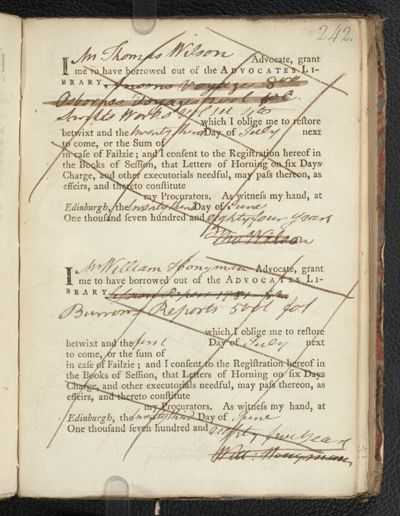 242.
I Mr Thomas Wilson Advocate, grant
me to have borrowed out of the ADVOCATES LI-
BRARY Ansons Voyage 8vo
Osbornes Voyages fol
Works 4to
which I oblige me to restore
betwixt and the twenty third Day of July next
to come, or the Sum of
in case of Failzie; and I consent to the Registration hereof in
the Books of Session, that Letters of Horning on six Days
Charge, and other executorials needful, may pass thereon, as
effeirs, and thereto constitute
my Procurators. As witness my hand, at
Edinburgh, the Day of June
One thousand seven hundred and eighty four years
Tho Wilson
I Mr William Honyman Advocate, grant
me to have borrowed out of the ADVOCATES LI-
BRARY 1781
Burrows Reports 5 vol fol
which I oblige me to restore
betwixt and the first Day of July next
to come, or the sum of
in case of Failzie; and I consent to the Registration hereof in
the Books of Session, that Letters of Horning on six Days
Charge, and other executorials needful, may pass thereon, as
effeirs, and thereto constitute
my Procurators. As witness my hand, at
Edinburgh, the Day of June
One thousand seven hundred and eighty four years
Will: Honyman